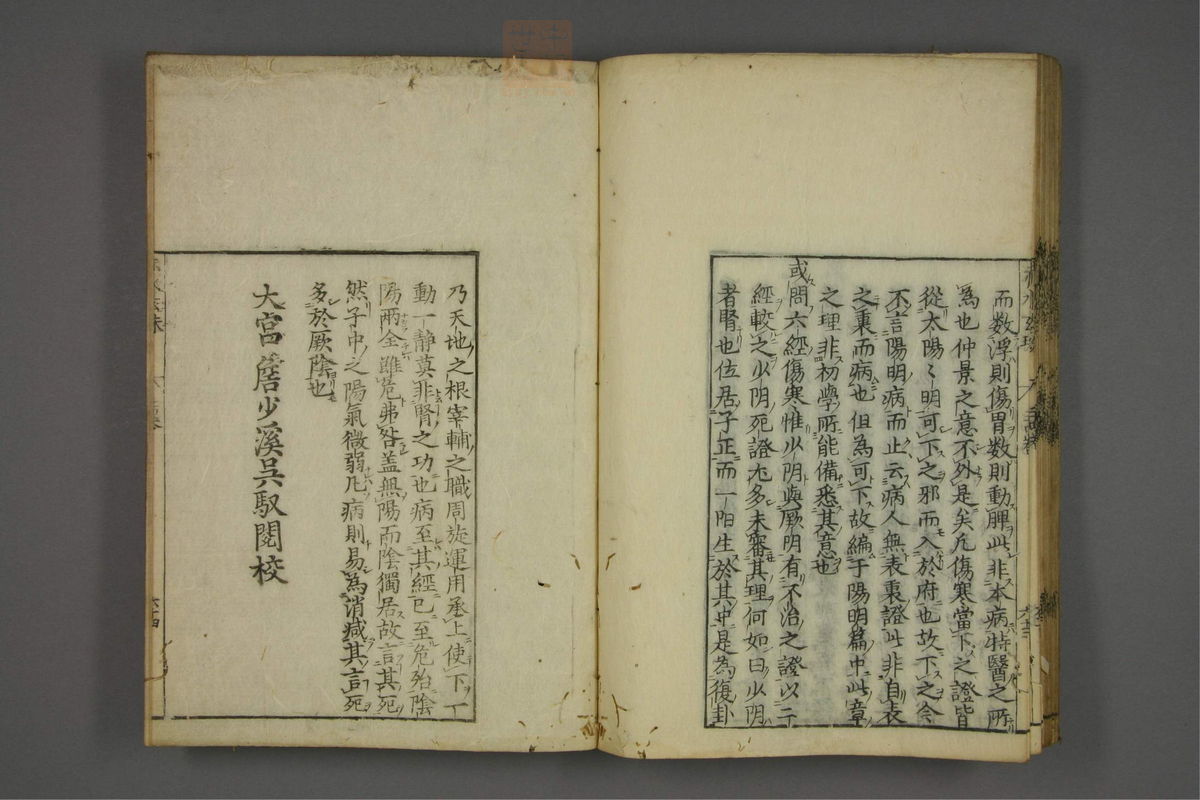 而数浮則傷胃数則動脾此非本病特醫之所
為也仲景之意不外是矣凡傷寒當下之證皆
從太陽〻明可下之邪而入於府也故下之今
不言陽明病而止云病人無表裏證此非自表
之裏而病也但為可下故編于陽明篇中此章
之理非初學所能備悉其意也
或問六經傷寒惟少阴與厥阴有不治之證以二
經較之少阴死證尤多未審其理何如曰少阴
者腎也位居子正而一阳生於其中是為復卦
乃天地之根宰輔之職周旋運用承上使下一
動一静莫非腎之功也病至其經已至危殆陰
陽兩全雖危弗咎盖無陽而陰獨居故言其死
然子中之陽氣微弱凡病則易為消滅其言死
多於厥陰也
大宮詹少溪吳馭閱校
六十四